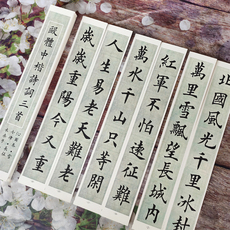 北國風光千里冰封
萬里雪飄望長城內
紅軍不怕遠征難
萬水千山只等閒
人生易老天難老
歲歲重陽今又重
歐體中楷詩詞三首